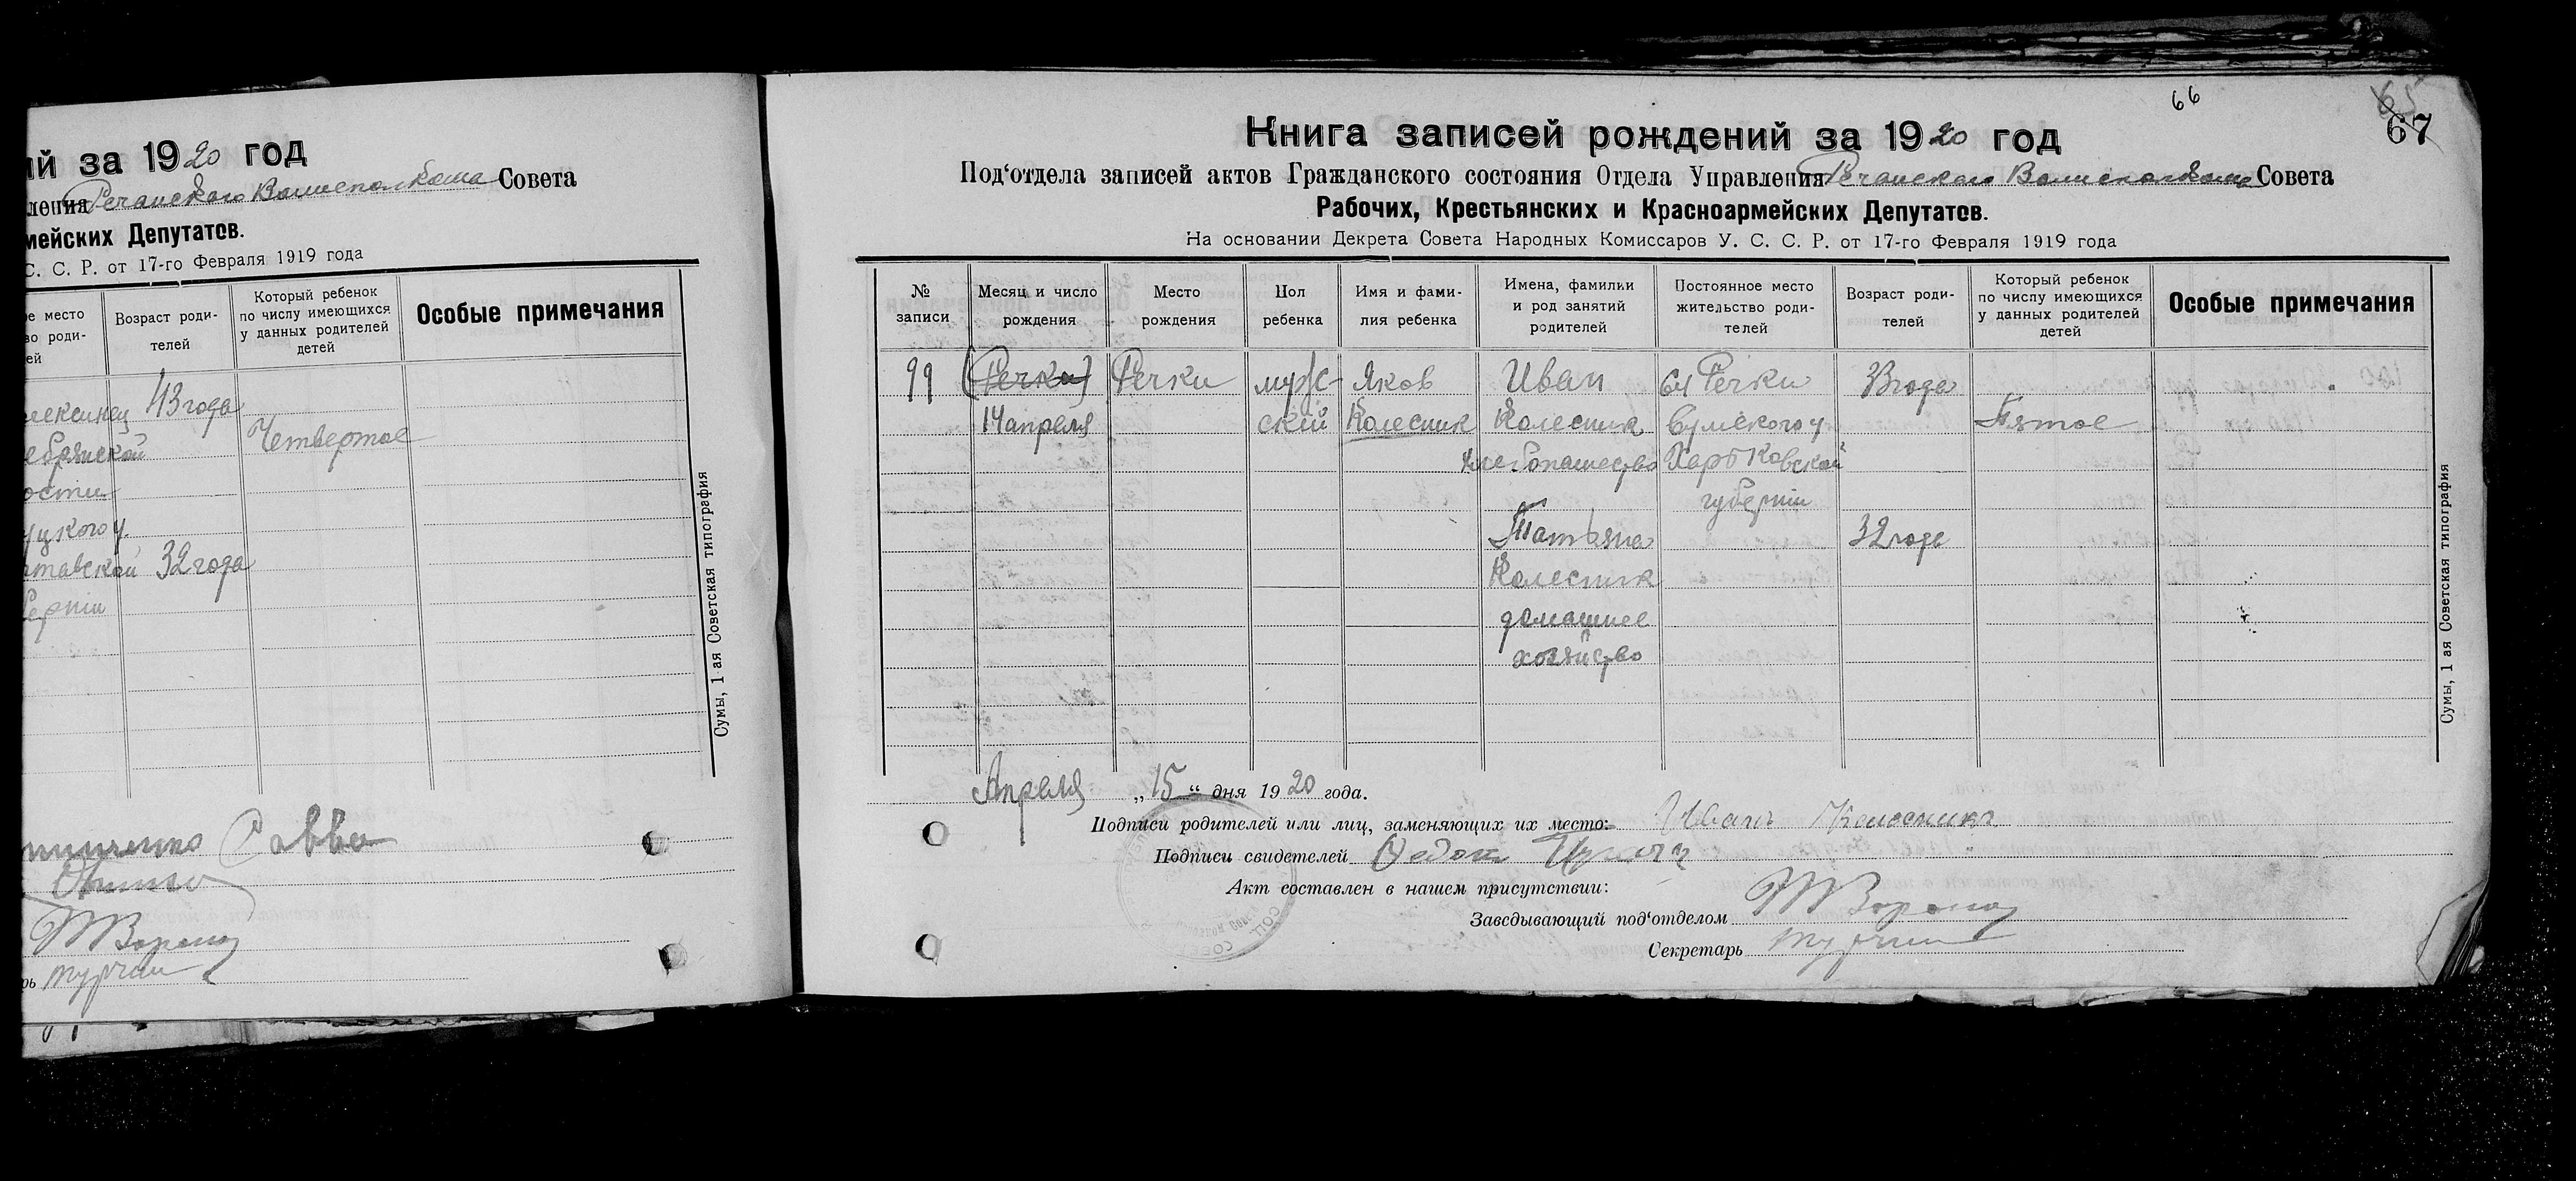 ий за 1920 год
ления Речанского Волисполкома Совета
мейских Депутатов.
С. С. Р. от 17-го Февраля 1919 года
ое место
во роди-
ей
Возраст роди-
телей
Который ребенок
по числу имеющихся
у данных родителей
детей
Особые примечания
43 года
Четвертое
ости
уцкого у.
тавской 32 года
берніи
Сумы, 1 ая Советская типография
Савва
ВВорона
рь Турчин
66
65
67
Книга записей рождений за 1920 год
Под‘отдела записей актов Гражданского состояния Отдела Управления Речанского Волисполкома Совета
Рабочих, Крестьянских и Красноармейских Депутатов.
На основании Декрета Совета Народных Комиссаров У. С. С. Р. от 17-го Февраля 1919 года
№
записи
Месяц и число
рождения
Место
рождения
Пол
ребенка
Имя и фами-
лия ребенка
Имена, фамилии
и род занятий
родителей
Постоянное место
жительство роди-
телей
Возраст роди-
телей
Который ребенок
по числу имеющихся
у данных родителей
детей
Особые примечания
99 (Речки) Речки муж- Яков Иван сл Речки 33 года
14 апреля ский Колесник Колесник Сумского у Пятое
хлебопашество Харьковской
губерніи
Татьяна 32 года
Колесник
домашнее
хозяйство
Сумы, 1 ая Советская типография
Апреля „15“ дня 1920 года.
Подписи родителей или лиц, заменяющих их место: Иванъ Колесникъ
Подписи свидетелей Федот
Акт составлен в нашем присутствии:
Заведывающий под‘отделом ВВорона
Секретарь Турчин